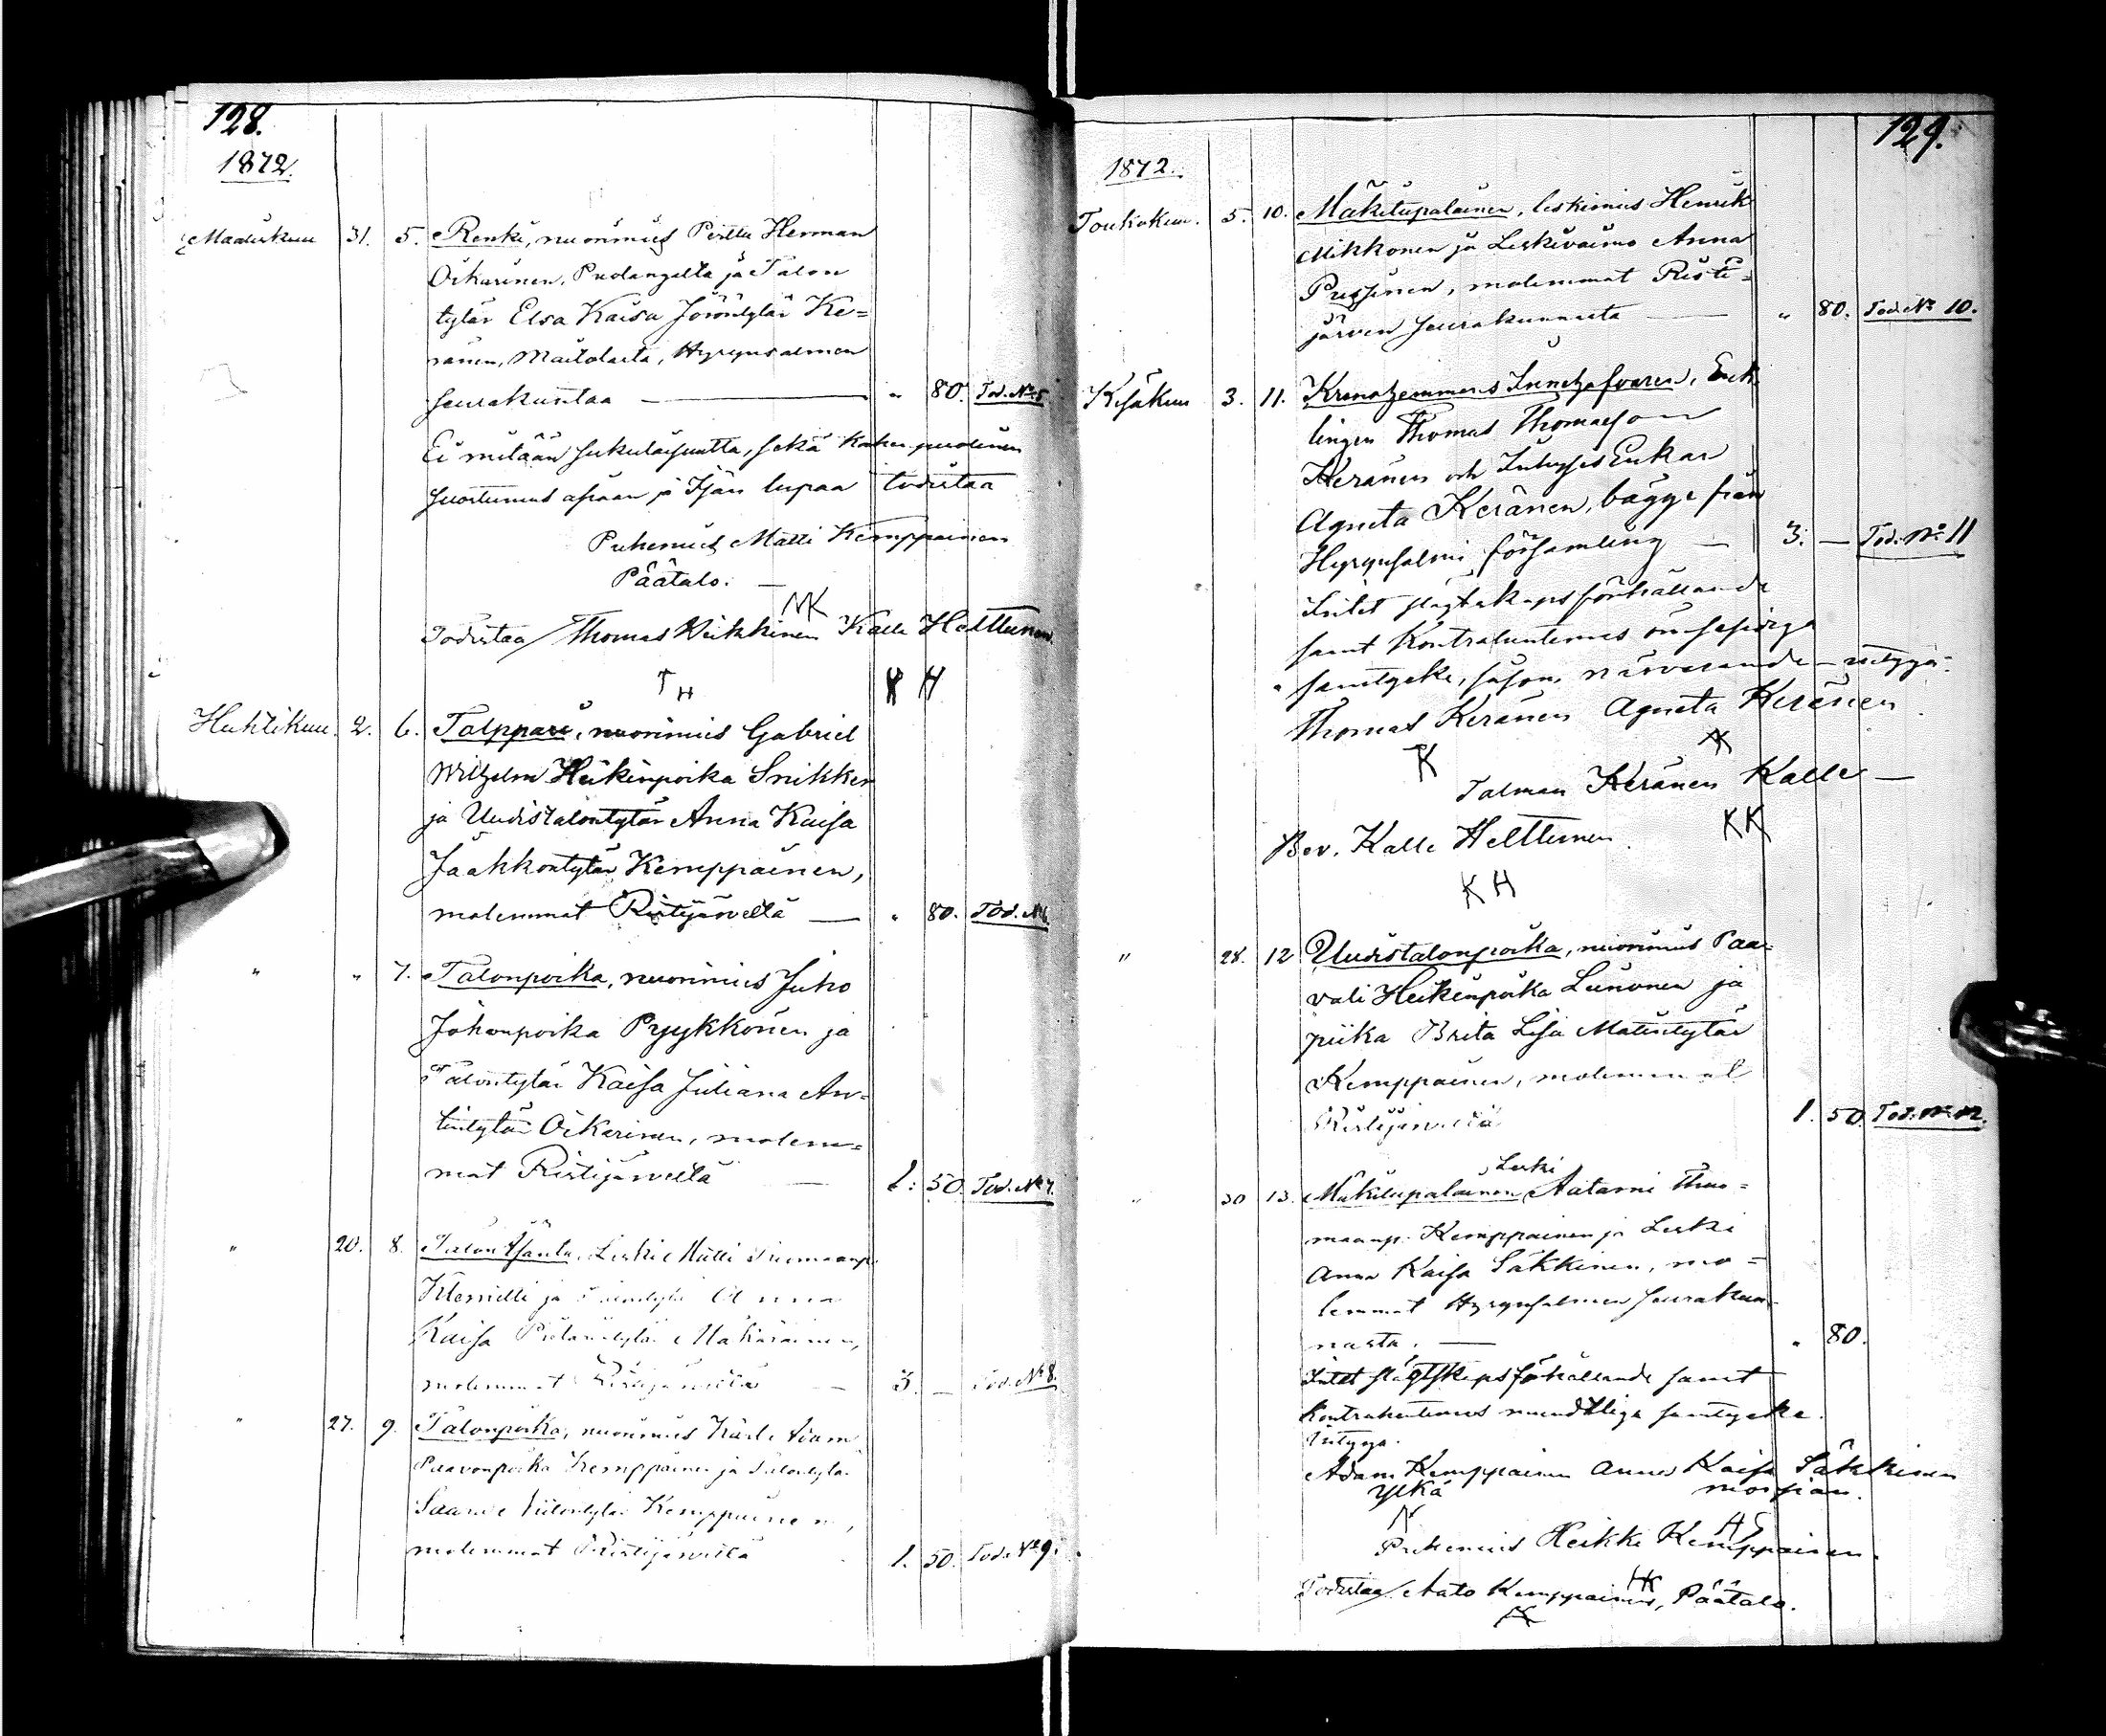 128.
1872.
Maaliskuu 31. 5. Renki, nuorimies Pertti Herman
Oikarinen, Puolangalta ja Talon
tytär Elsa Kaisa Jöröntytär Ke=
ränen, Maitolasta, Hyrynsalmen
seurakuntaa — " 80. Tod. No 5
Ei mitään sukulaisuutta, sekä kahen puolinen
suostumus asiaan ja Isän lupaa todistaa
Puhemies Matti Kemppainen
Päätalo. —
MK
Todistaa Thomas Heikkinen Kalle Helttunen.
TH KH
Huhtikuu. 2. 6. Talppari, nuorimies Gabriel
Wilhelm Heikinpoika Snikker
ja Uudistalontytär Anna Kaisa
Jaakkontytär Kemppainen,
molemmat Ristijärveltä — " 80. Tod. No 6.
" " 7. Talonpoika, nuorimies Juho
Johanpoika Pyykkönen ja
Talontytär Kaisa Juliana An=
tintytär Oikarinen, molem=
mat Ristijärveltä — 1: 50. Tod. No 7.
" 20. 8. Talon Isäntä, Leski Matti Tuomaanp.
Klemetti ja Anna
Kaisa Mäkäräinen,
molemmat Ristijärveltä — 3. — Tod. No 8.
" 27. 9. Talonpoika, nuorimies Kaarle Aam
Paavonpoika Kemppainen ja Talontytär
Kemppainen,
molemmat Ristijärveltä 1. 50. Tod. No 9.
129.
1872.
Toukokuu. 5. 10. Mäkitupalainen, leskimies Henrik
Mikkonen ja Leskivaimo Anna
Pussinen, molemmat Risti=
järven seurakunnasta — " 80. Tod. No 10.
Kesäkuu 3. 11. Kronohemmans Innehafvaren, Enk
lingen Thomas Thomasson
Keränen och Inhyses Enkan
Agneta Keränen, bägge från
Hyrynsalmi församling — 3. — Tod. No 11
Intet slägtskapsförhållande
samt Kontrahenternes ömsesidiga
samtycke, såsom närvarande — intyga.
Thomas Keränen Agneta Keränen
TK AK
Talman Keränen Kalle —
KK
Bev. Kalle Helttunen.
KH
" 28. 12 Uudistalonpoika, nuorimies Paa=
vali Heikinpoika Leinonen ja
piika Brita Lisa Matintytär
Kemppainen, molemmat
Ristijärveltä 1. 50. Tod. No 12.
Leski
" 30 13. Mäkitupalainen, Aatami Thuo=
maanp. Kemppainen ja Leski
Anna Kaisa Säkkinen, mo=
lemmat Hyrynsalmen seurakun
nasta. — " 80.
Intet slägtskapsförhållande samt
kontrahenternes mundtliga samtycke
Intyga.
Adam Kemppainen Anna Kaisa Säkkinen
ylkä morsian.
Puhemies Heikki Kemppainen.
HK
Todistaa Aato Kemppainen, Päätalo.
AK